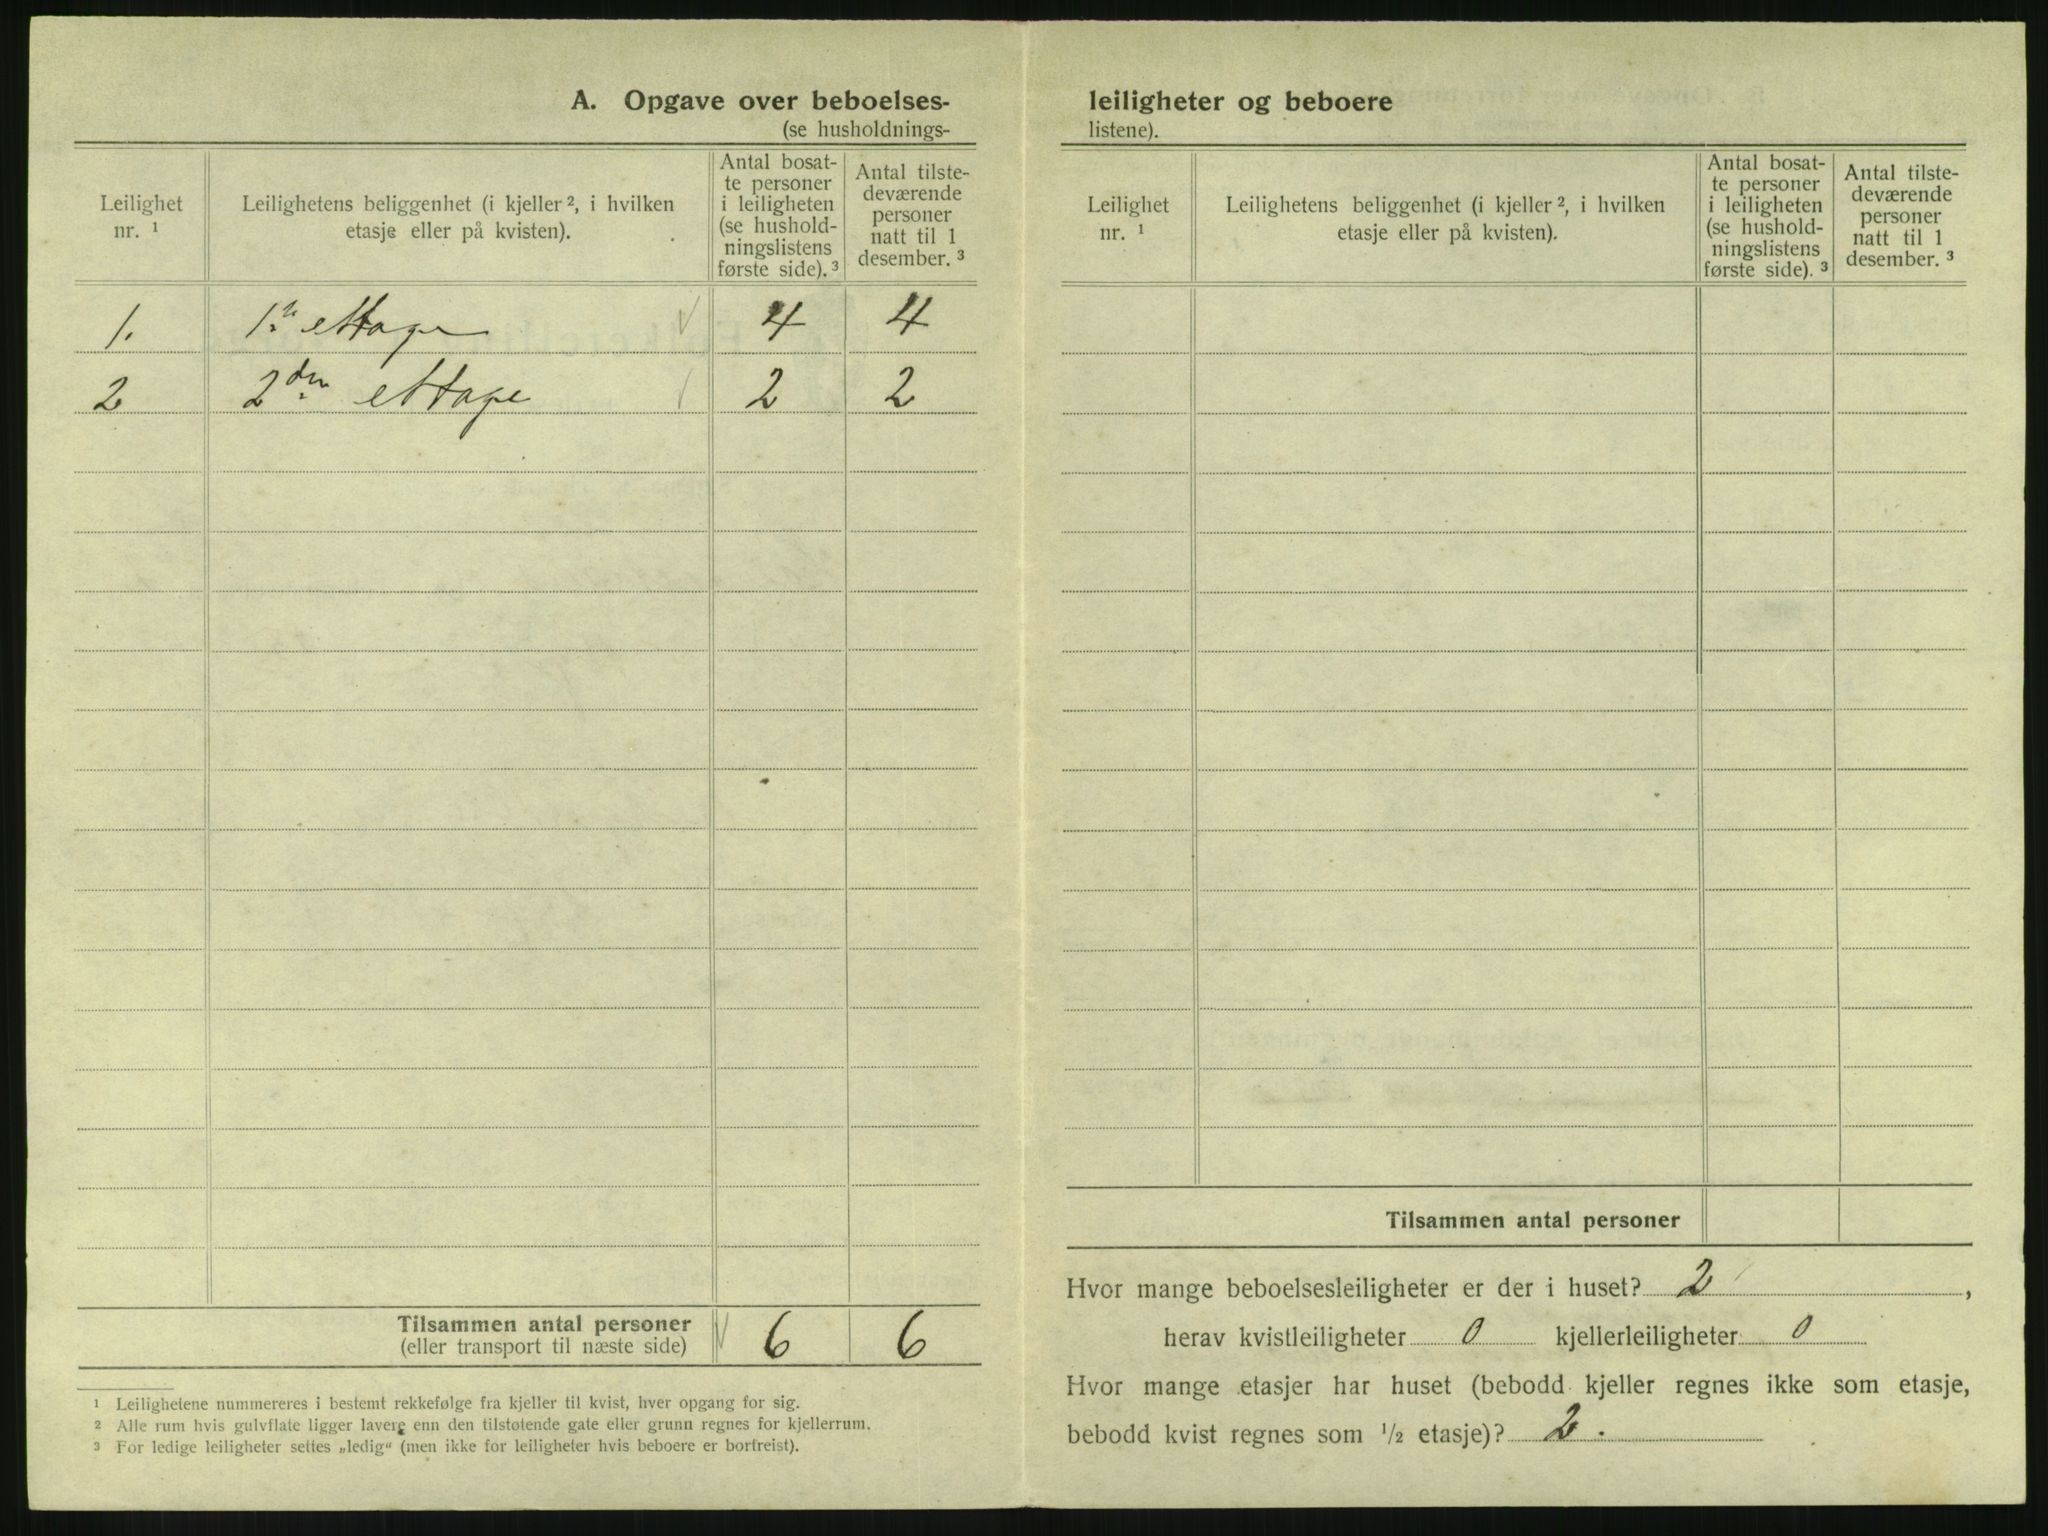 A. Opgave over beboelses-
(se husholdnings-
Leilighet
nr. ¹
Leilighetens beliggenhet (i kjeller ², i hvilken
etasje eller på kvisten).
Antal bosat-
te personer
i leiligheten
(se hushold-
ningslistens
første side). ³
Antal tilste-
deværende
personer
natt til 1
desember. ³
1. 1ste ettage 4 4
2 2den ettage 2 2
Tilsammen antal personer 6 6
(eller transport til næste side)
¹ Leilighetene nummereres i bestemt rekkefølge fra kjeller til kvist, hver opgang for sig.
² Alle rum hvis gulvflate ligger lavere enn den tilstøtende gate eller grunn regnes for kjellerrum.
³ For ledige leiligheter settes „ledig“ (men ikke for leiligheter hvis beboere er bortreist).
leiligheter og beboere
listene).
Leilighet
nr. ¹
Leilighetens beliggenhet (i kjeller ², i hvilken
etasje eller på kvisten).
Antal bosat-
te personer
i leiligheten
(se hushold-
ningslistens
første side). ³
Antal tilste-
deværende
personer
natt til 1
desember. ³
Tilsammen antal personer
Hvor mange beboelsesleiligheter er der i huset? 2 ,
herav kvistleiligheter 0 kjellerleiligheter 0
Hvor mange etasjer har huset (bebodd kjeller regnes ikke som etasje,
bebodd kvist regnes som ½ etasje)? 2.